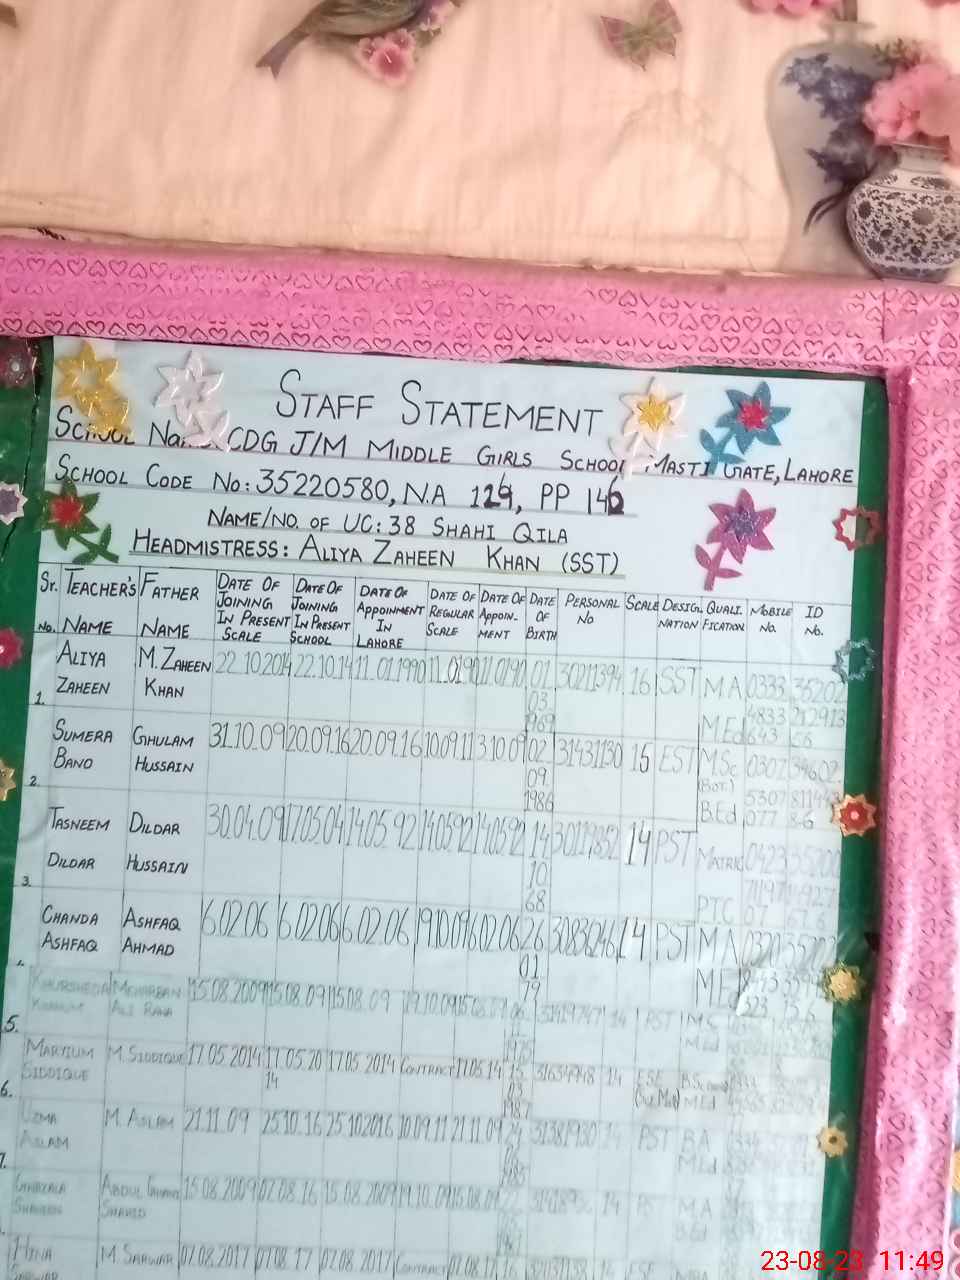 STAFF STATEMENT
SCHOOL NAME CDG J/M MIDDLE GIRLS SCHOOL MASTI GATE, LAHORE
SCHOOL CODE NO: 35220580, N.A 129, PP 146
NAME/NO. OF UC: 38 SHAHI QILA
HEADMISTRESS: ALIYA ZAHEEN KHAN (SST)
Sr. No. TEACHER'S NAME FATHER NAME DATE OF JOINING IN PRESENT SCALE DATE OF JOINING IN PRESENT SCHOOL DATE OF APPOINMENT IN LAHORE DATE OF REGULAR SCALE DATE OF APPOIN-MENT DATE OF BIRTH PERSONAL NO SCALE DESIGNATION QUALIFICATION MOBILE NO. ID NO.
1. ALIYA ZAHEEN M. ZAHEEN KHAN 22.10.2014 22.10.14 11.01.1990 11.01.90 11.01.90 01.03.1969 30211394 16 SST M.A M.Ed
2. SUMERA BANO GHULAM HUSSAIN 31.10.09 20.09.16 20.09.16 10.09.11 31.10.09 02.09.1986 31431130 15 EST M.Sc (BOT.) B.Ed
3. TASNEEM DILDAR DILDAR HUSSAIN 30.04.09 17.05.04 14.05.92 14.05.92 14.05.92 14 10 68 30119852 14 PST MATRIC PTC
CHANDA ASHFAQ ASHFAQ AHMAD 6.02.06 6.02.06 6.02.06 19.10.09 6.02.06 26 01 79 30830246 14 PST M.A M.Ed
5. KHURSHEDA MEHARBAN ALI 15.08.2009 15.08.09 15.08.09 19.10.09 1975 14 PST M.Ed
6. MARYIUM SIDDIQUE M. SIDDIQUE 17.05.2014 17.05.2014 17.05.2014 CONTRACT 17.05.14 15 03 1987 31654948 14 ESE M.Ed
7. UZMA ASLAM M. ASLAM 21.11.09 25.10.16 25.10.2016 10.09.11 21.11.09 31381930 14 PST B.A M.Ed
GHAZALA SHAHEEN ABDUL SHAHID 15.08.2009 02.08.16 15.08.2009 19.10.09 15.08.09 14 M.A B.Ed
HINA SARWAR M. SARWAR 07.08.2017 07.08.17 07.08.2017 CONTRACT ESE
23-08-23 11:49